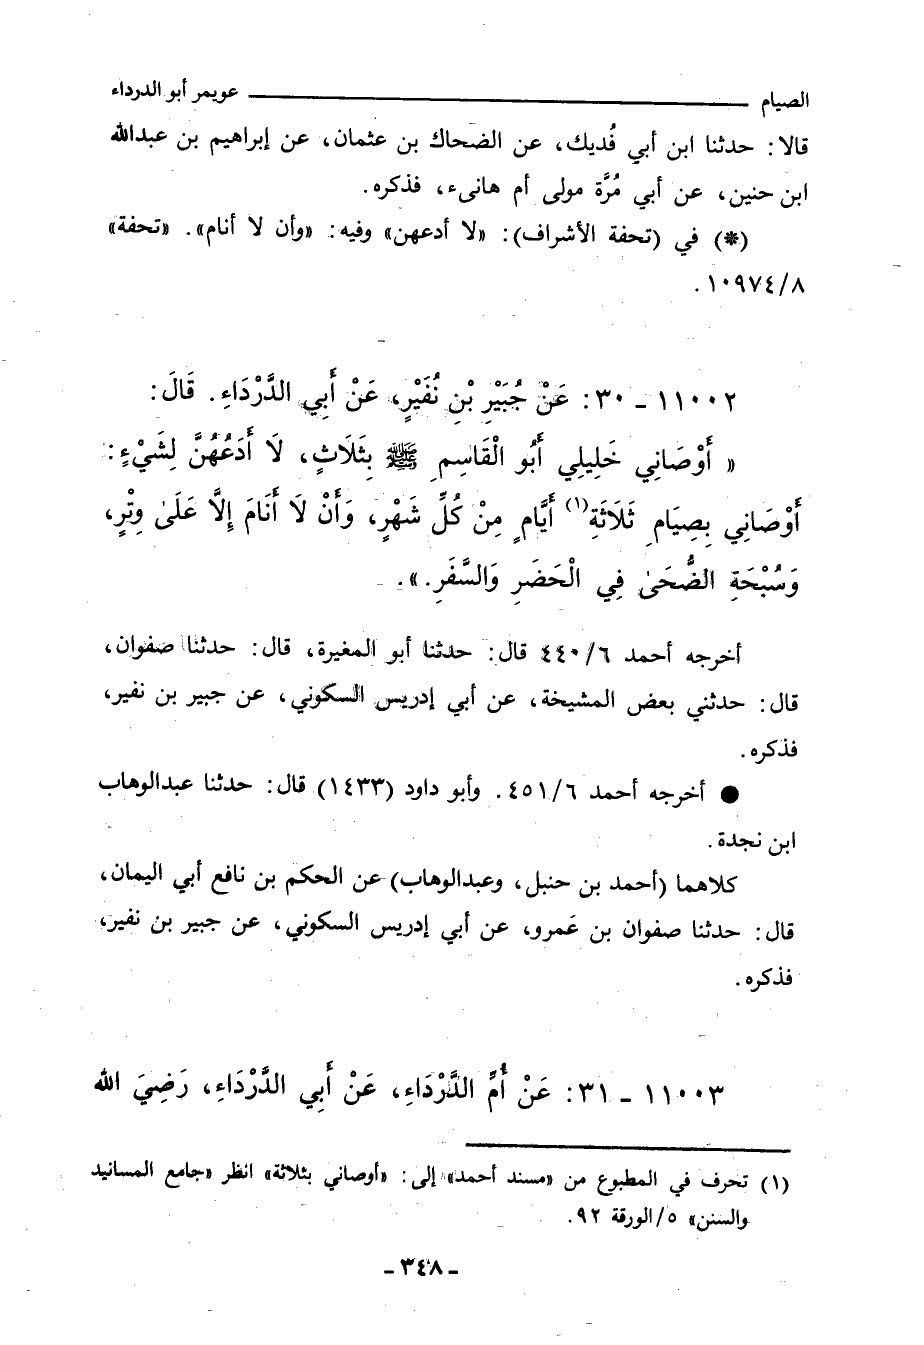 الصيام ــــــــــ عويمر أبو الدرداء
قالا: حدثنا ابن أبي فُديك، عن الضحاك بن عثمان، عن إبراهيم بن عبدالله
ابن حنين، عن أبي مُرَّة مولى أم هانىء، فذكره.
(*) في (تحفة الأشراف): «لا أدعهن» وفيه: «وأن لا أنام». «تحفة»
٨/١٠٩٧٤.
١١٠٠٢ ـ ٣٠: عَنْ جُبَيْرِ بْنِ نُفَيْرٍ، عَنْ أَبِي الدَّرْدَاءِ. قَالَ:
« أَوْصَانِي خَلِيلِي أَبُو الْقَاسِمِ ﷺ بِثَلَاثٍ، لَا أَدَعُهُنَّ لِشَيْءٍ:
أَوْصَانِي بِصِيَامِ ثَلَاثَةِ(١) أَيَّامٍ مِنْ كُلِّ شَهْرٍ، وَأَنْ لَا أَنَامَ إِلَّا عَلَىٰ وِتْرٍ،
وَسُبْحَةِ الضُّحَىٰ فِي الْحَضَرِ وَالسَّفَرِ.».
أخرجه أحمد ٦/٤٤٠ قال: حدثنا أبو المغيرة، قال: حدثنا صفوان،
قال: حدثني بعض المشيخة، عن أبي إدريس السكوني، عن جبير بن نفير،
فذكره.
● أخرجه أحمد ٦/٤٥١. وأبو داود (١٤٣٣) قال: حدثنا عبدالوهاب
ابن نجدة.
كلاهما (أحمد بن حنبل، وعبدالوهاب) عن الحكم بن نافع أبي اليمان،
قال: حدثنا صفوان بن عَمرو، عن أبي إدريس السكوني، عن جبير بن نفير،
فذكره.
١١٠٠٣ ـ ٣١: عَنْ أُمِّ الدَّرْدَاءِ، عَنْ أَبِي الدَّرْدَاءِ، رَضِيَ الله
(١) تحرف في المطبوع من «مسند أحمد» إلى: «أوصاني بثلاثة» انظر «جامع المسانيد
والسنن» ٥/الورقة ٩٢.
ـ ٣٤٨ ـ